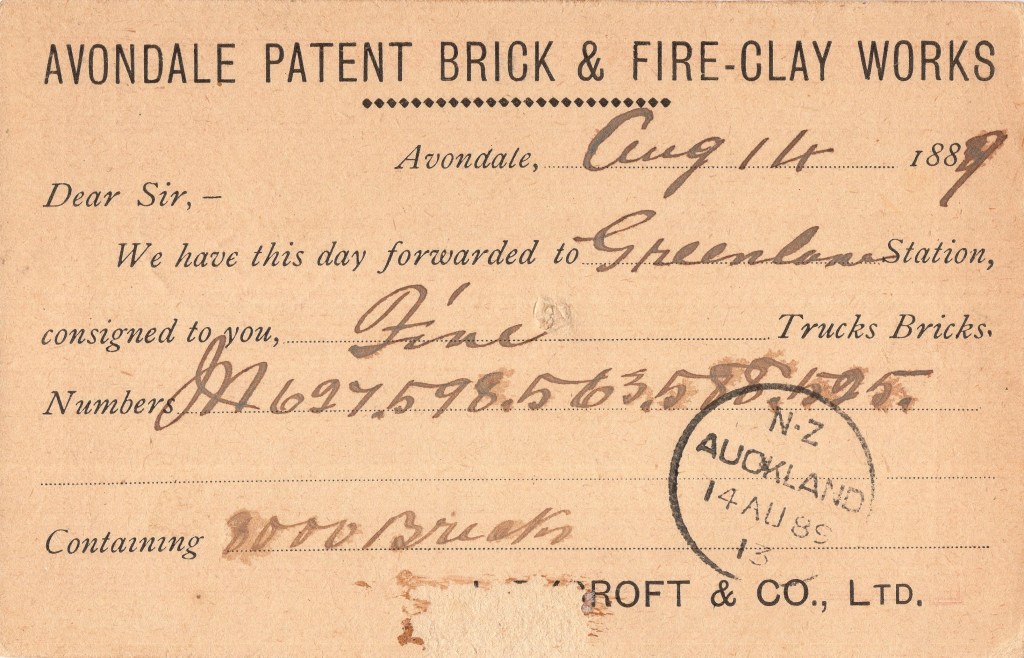 AVONDALE PATENT BRICK & FIRE-CLAY WORKS
Avondale, Aug 14 1889
Dear Sir, –
We have this day forwarded to Greenlane Station,
consigned to you, Five Trucks Bricks.
Numbers M 627. 598. 563. 588. 525.
N·Z
AUCKLAND
14 AU 89
13
Containing 8000 Bricks
CROFT & CO., LTD.